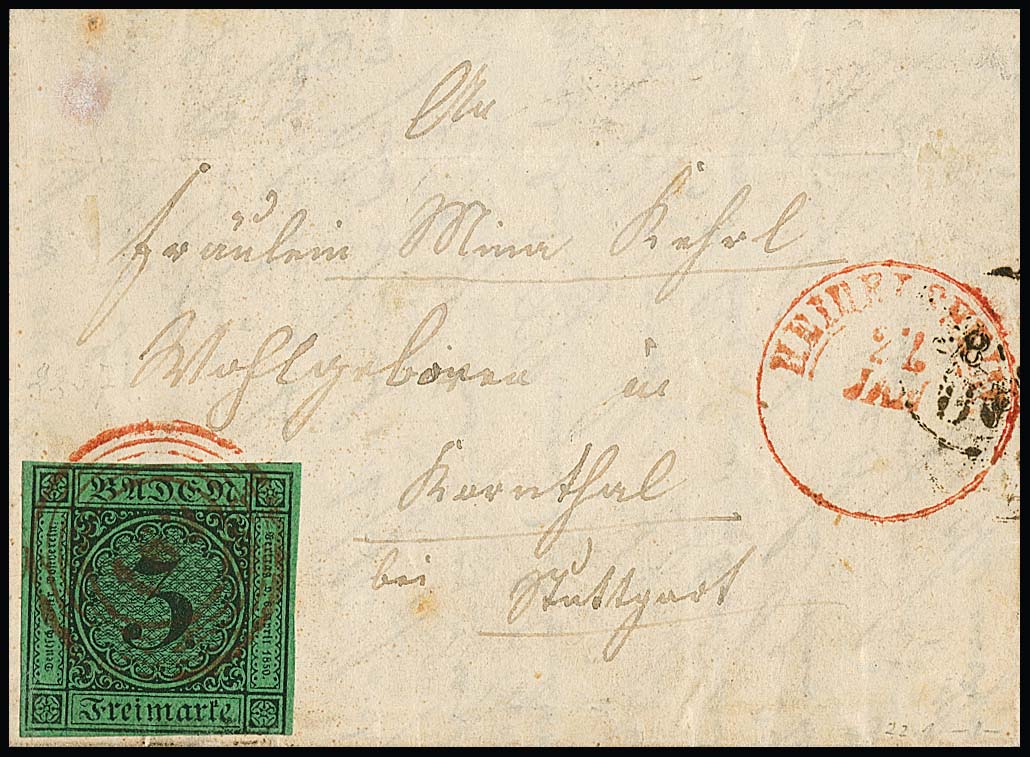 An
Fräulein Mina Kehrl
Wohlgeboren in
Kornthal
bei Stuttgart
HEIDELSHEIM
22
JAN
BADEN
3
Deutsch-Oestr. Postverein
Vertrag v. 6 April 1850.
Freimarke